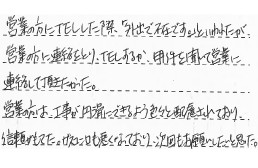 営業の方にTELした際「外出で不在です。」といわれたが、
営業の方に連絡をとり、TELするか、用件を聞いて営業に
連絡して頂きたかった。
営業の方は、工事が円滑にできるよう色々と配慮されており、
信頼がもてた。けんこにも悪くなっており、次回もお願いしたと思た。